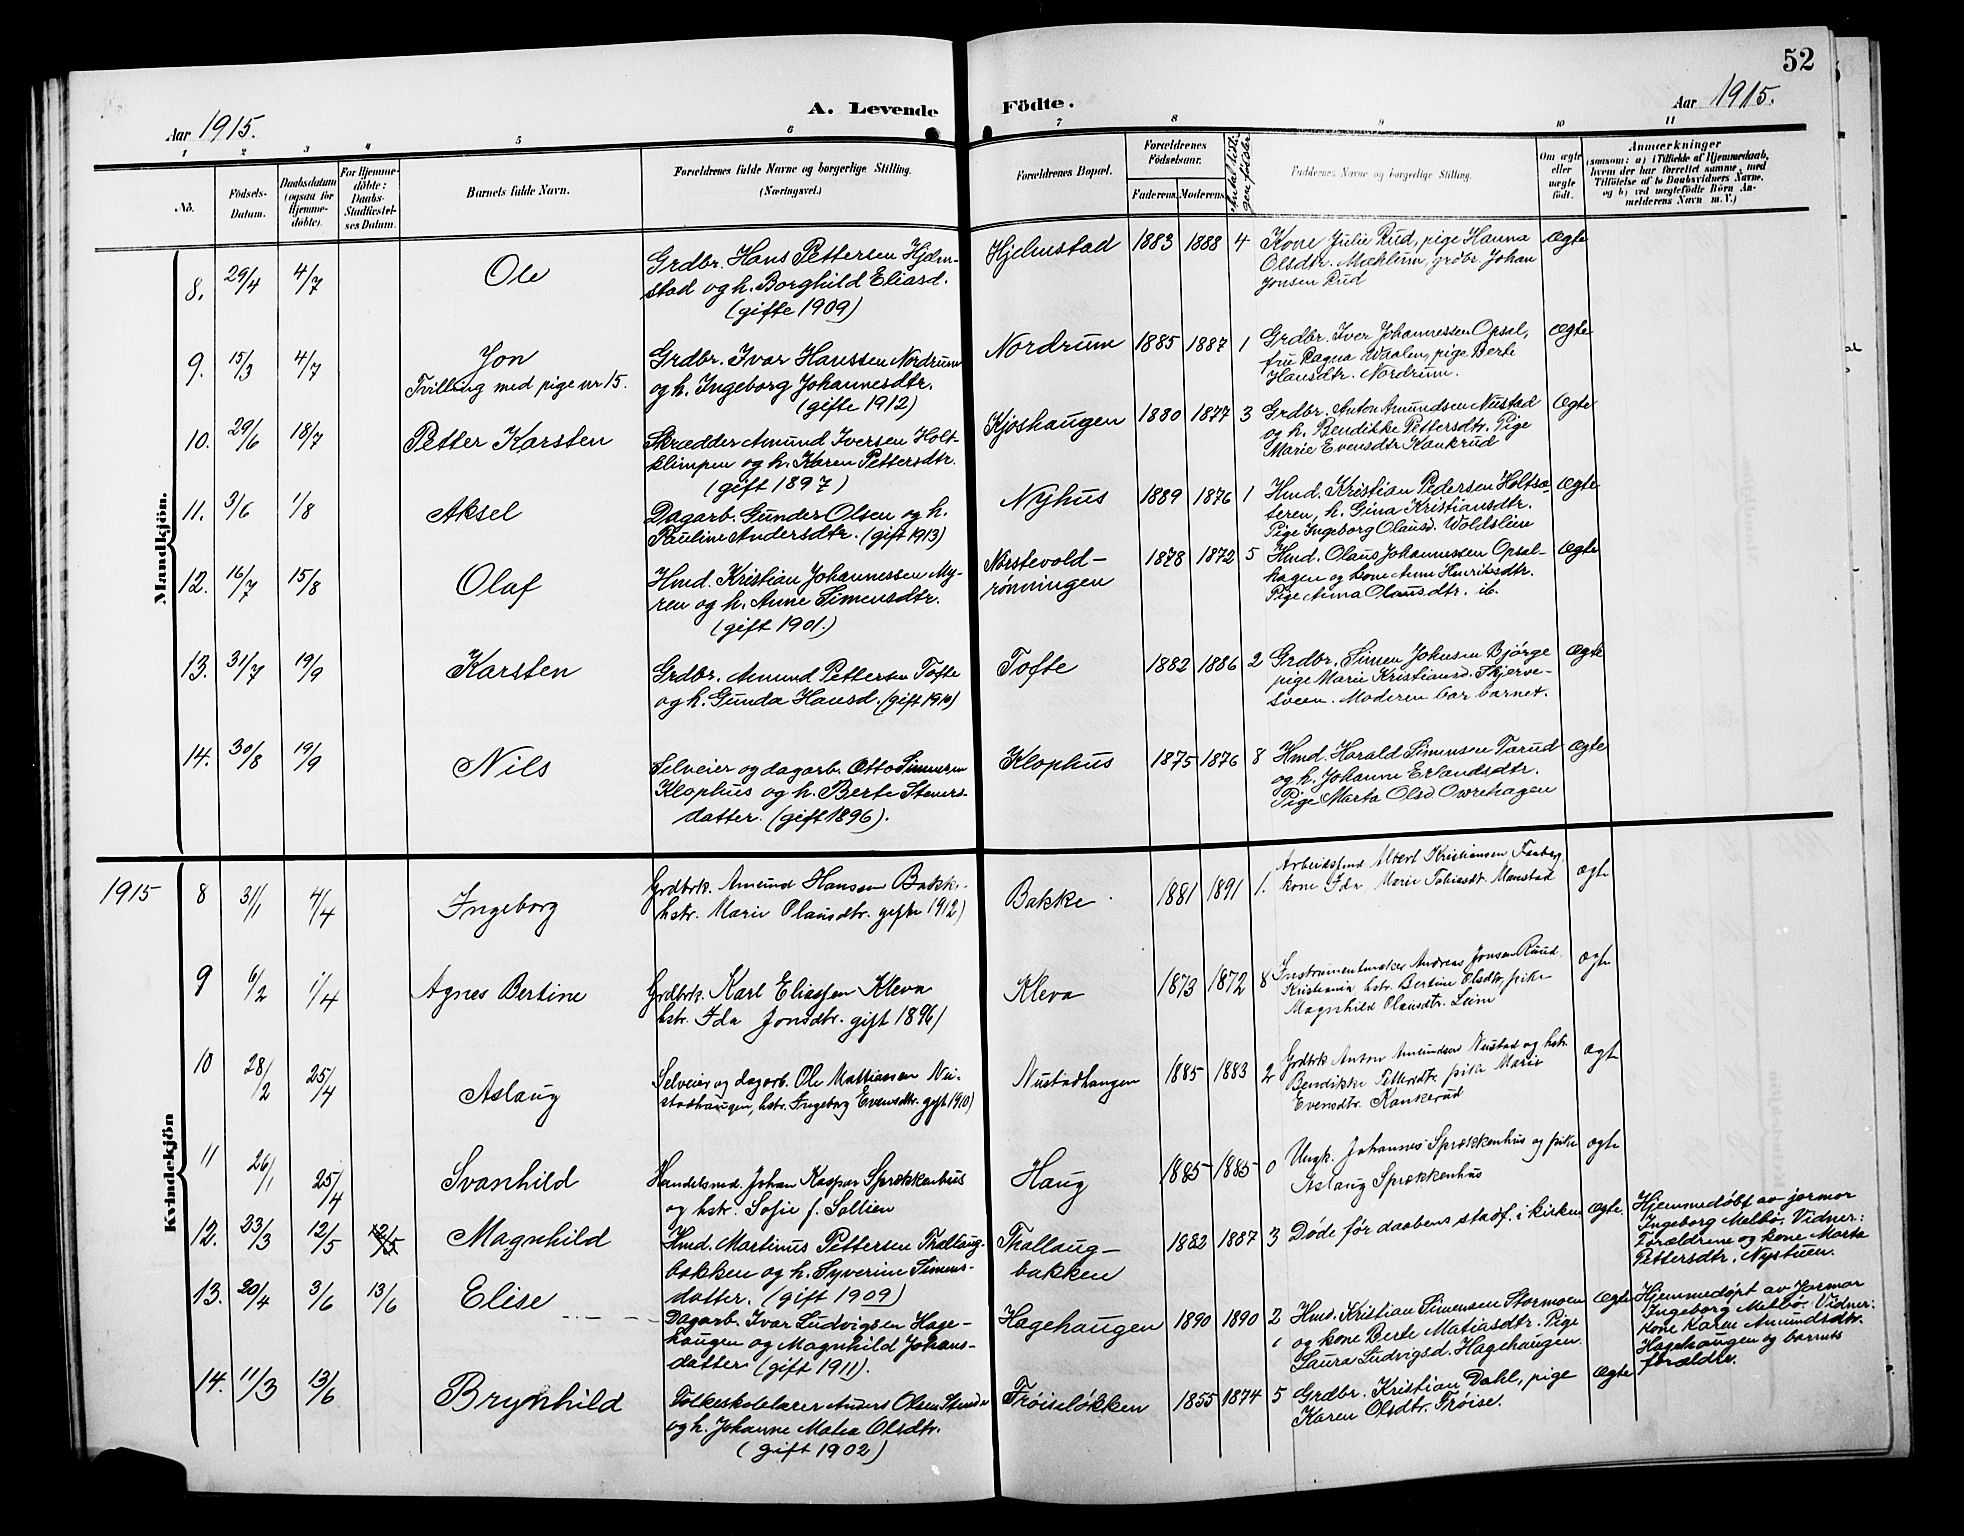 52
A. Levende Födte.
Aar 1915.
Aar 1915.
1 2 3 4 5 6 7 8 9 10 11
No.
Födsels-
Datum.
Daabsdatum
(ogsaa for
Hjemme-
döbte).
For Hjemme-
döbte:
Daabs-
Stadfæstel-
ses Datum.
Barnets fulde Navn.
Forældrenes fulde Navne og borgerlige Stilling.
(Næringsvei.)
Forældrenes Bopæl.
Forældrenes
Födselsaar.
Faderens. Moderens.
Antal tidli-
gere fødsler
Faddernes Navne og borgerlige Stilling.
Om ægte
eller
uægte
födt.
Anmærkninger
(saasom: a) i Tilfælde af Hjemmedaab,
hvem der har forrettet samme, med
Tilföielse af to Daabsvidners Navne,
og b) ved uægtefödte Börn An-
melderens Navn m. V.)
Mandkjön.
8. 29/4 4/7 Ole
Grdbr. Hans Pettersen Hjelm-
stad og h. Borghild Eliasd.
(gifte 1909)
Hjelmstad 1883 1888 4
Kone Julie Rud, pige Hanna
Olsdtr. Mæhlum, grdbr. Johan
Jonsen Rud
Ægte
9. 15/3 4/7 Jon
Tvilling med pige nr 15.
Grdbr. Ivar Hanssen Nordrum
og h. Ingeborg Johannesdtr.
(gifte 1912)
Nordrum 1885 1887 1
Grdbr. Iver Johannessen Opsal,
fru Ragna Waalen, pige Berte
Hansdtr. Nordrum.
Ægte
10. 29/6 18/7 Petter Karsten
Skrædder Amund Iversen Holt-
klimpen og h. Karen Pettersdtr.
(gift 1897)
Kjoshaugen 1880 1877 3
Grdbr. Anton Amundsen Nustad
og h. Bendikke Pettersdtr. Pige
Marie Evensdtr Kankrud
Ægte
11. 3/6 1/8 Aksel
Dagarb. Gunder Olsen og h.
Pauline Andersdtr. (gift 1913)
Nyhus 1889 1876 1
Hmd. Kristian Pedersen Holtsæ-
teren, h. Gina Kristiansdtr.
Pige Ingeborg Olausd. Woldslien
Ægte
12. 16/7 15/8 Olaf
Hmd. Kristian Johannessen My-
ren og h. Anne Simensdtr.
(gift 1901.)
Norstevold-
rønningen 1878 1872 5
Hmd. Olaus Johannessen Opsal-
hagen og kone Anne Henriksdtr.
Pige Anna Olausdtr. ib.
Ægte
13. 31/7 19/9 Karsten
Grdbr. Amund Pettersen Tofte
og h. Gunda Hansd. (gift 1910)
Tofte 1882 1886 2
Grdbr. Simen Johnsen Bjørge
pige Marie Kristiansd. Skjerve-
sveen. Moderen bar barnet.
Ægte
14. 30/8 19/9 Nils
Selveier og dagarb. Otto Simensen
Klophus og h. Berte Steners-
datter. (gift 1896).
Klophus 1875 1876 8
Hmd. Harald Simensen Tarud
og h. Johanne Erlandsdtr.
Pige Marta Olsd Owrehagen
Ægte
1915
Kvindekjön
8 31/1 4/4 Ingeborg
Grdbrk. Amund Hansen Bakke
hstr. Marie Olausdtr. gifte 1912)
Bakke 1881 1891 1.
Arbeidsfmd Albert Kristiansen Faaberg
kone Ida Marie Tobiasdt. Monstad
ægte
9 6/2 1/4 Agnes Bertine
Grdbrk. Karl Eliassen Kleva
hstr. Ida Jonsdtr. gift 1896)
Kleva 1873 1872 8
Instrumentmaker Andreas Jonsen Ruud
Kristiania hstr. Bertine Olsdtr, pike
Magnhild Olausdtr. Leine
ægte
10 28/2 25/4 Aslaug
Selveier og dagarb. Ole Mathiassen Nu-
stadhaugen, hstr. Ingeborg Evensdtr. gift 1910)
Nustadhaugen 1885 1883 2
Grdbrk Anton Amundsen Nustad og hstr.
Bendikke Pettersdtr. pike Marie
Evensdtr. Kankerud
ægte
11 26/1 25/4 Svanhild
Handelsmd. Johan Kaspar Sprækkenhus
og hstr. Sofie f. Sollien
Haug 1885 1885 0
Ungk. Johannes Sprækkenhus og pike
Aslaug Sprækkenhus
ægte
12. 23/3 12/5 12/5 Magnhild
Hmd. Martinus Pettersen Thallaug-
bakken og h. Syverine Simens-
datter. (gift 1909)
Thallaug-
bakken 1882 1887 3
Døde før daabens stadf. i kirken
Ægte.
Hjemmedøbt av jormor
Ingeborg Melbø. Vidner:
Forældrene og kone Marta
Pettersdtr. Nystuen.
13. 20/4 3/6 13/6 Elise
Dagarb. Ivar Ludvigsen Hage-
haugen og Magnhild Johans-
datter (gift 1911).
Hagehaugen 1890 1890 2
Hmd. Kristian Simensen Stormoen
og kone Berte Matiasdtr. Pige
Laura Ludvigsd. Hagehaugen.
Ægte
Hjemmedøpt av Jormor
Ingeborg Melbø. Vidner:
Kone Karen Amundsdtr.
Hagehaugen og barnets
forældre.
14. 11/3 13/6 Brynhild
Folkeskolelærer Anders Olsen
og h. Johanne Matea Olsdtr.
(gift 1902)
Frøiseløkken 1855 1874 5
Grdbr. Kristian Dahl, pige
Karen Olsdtr. Frøise.
Ægte